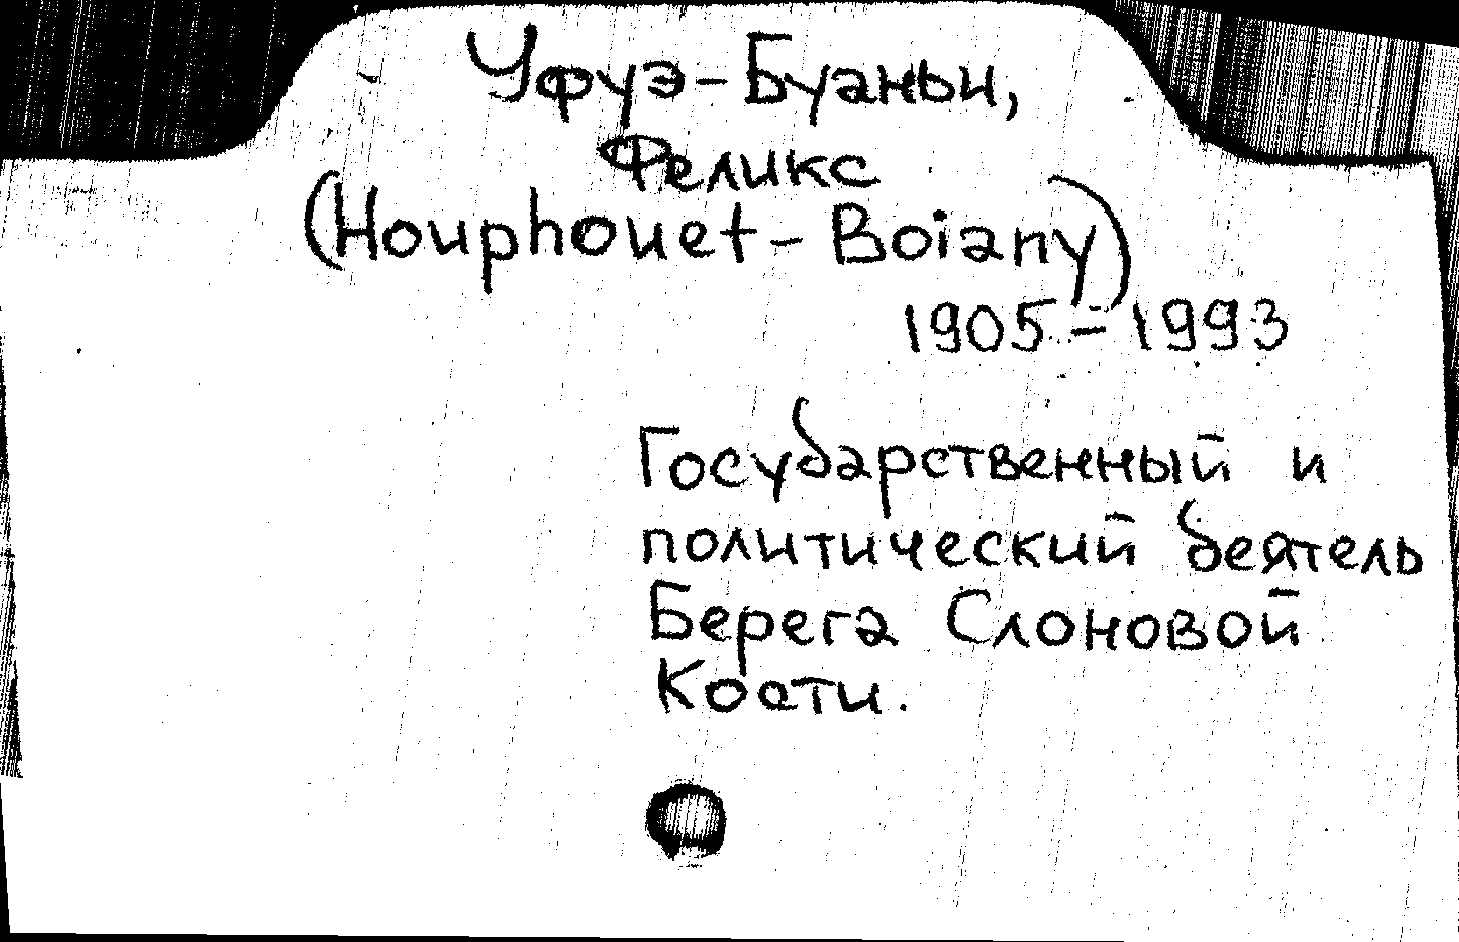 Уфуэ-Буаньи,
Феликс
(Houphouet - Boiany)
1905-1993
Государственный и
политический деятель
Берега Слоновой
Кости.